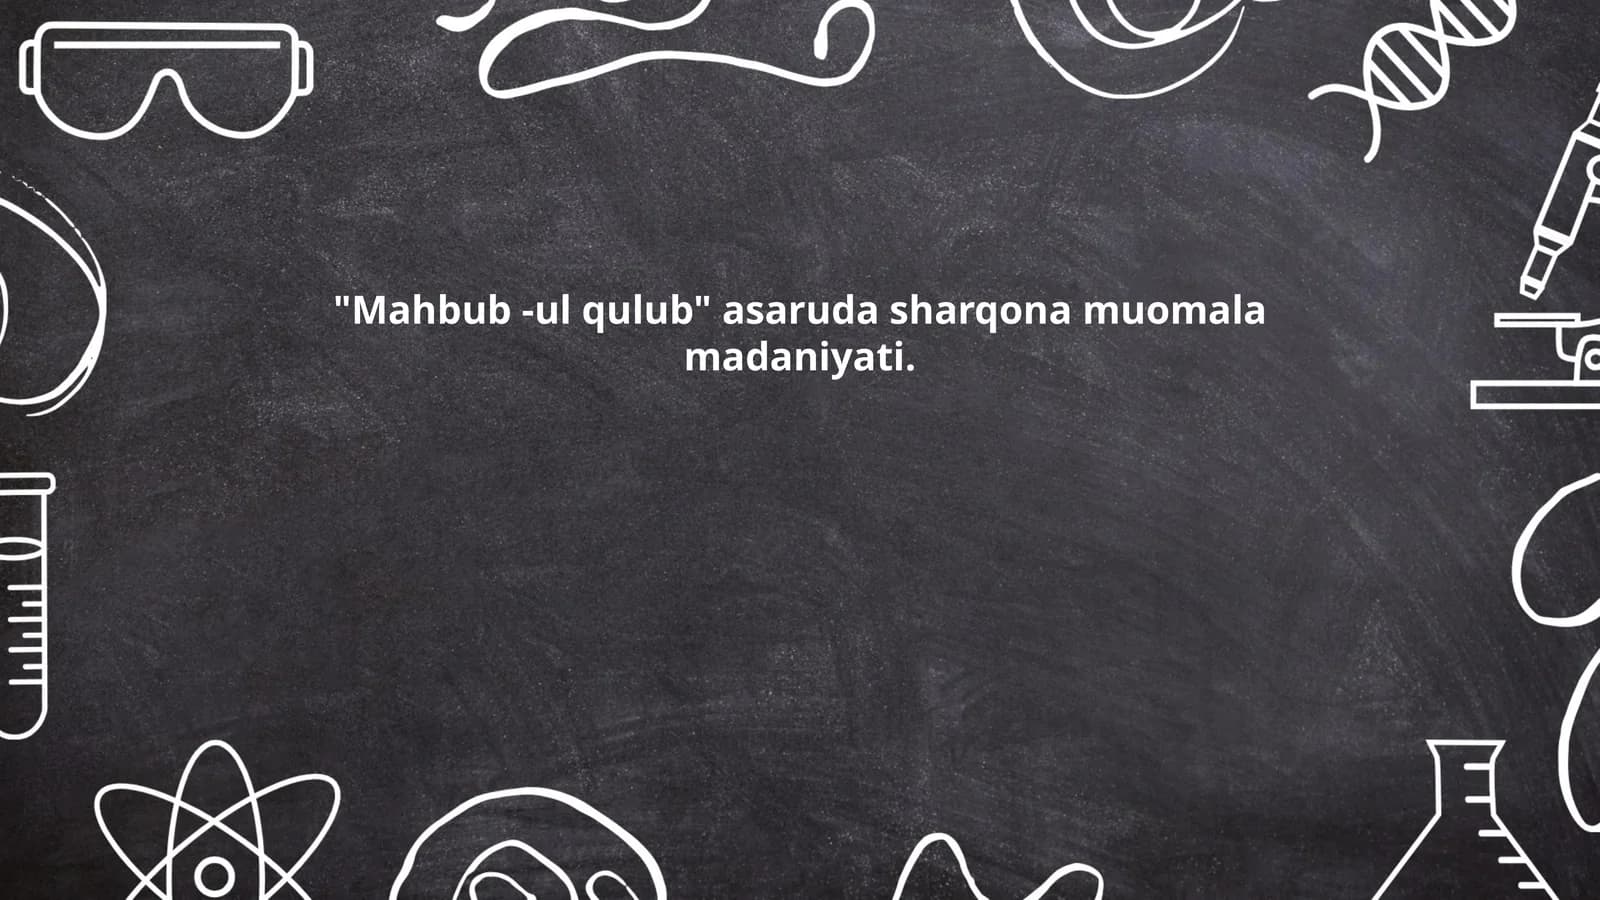 "Mahbub -ul qulub" asaruda sharqona muomala
madaniyati.